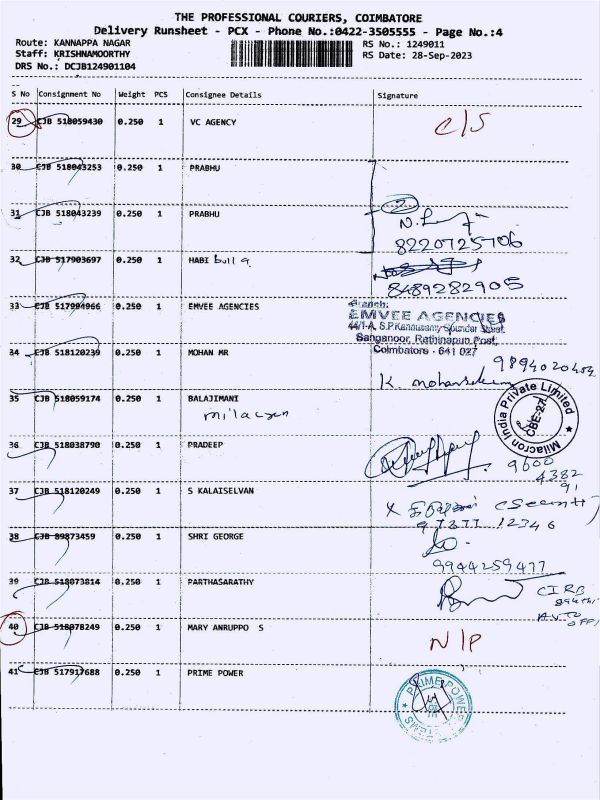 THE PROFESSIONAL COURIERS, COIMBATORE
Delivery Runsheet - PCX - Phone No.:0422-3505555 - Page No.:4
Route: KANNAPPA NAGAR RS No.: 1249011
Staff: KRISHNAMOORTHY RS Date: 28-Sep-2023
DRS No.: DCJB124901104
S No Consignment No Weight PCS Consignee Details Signature
29 CJB 518059430 0.250 1 VC AGENCY C/S
30 CJB 518043253 0.250 1 PRABHU
31 CJB 518043239 0.250 1 PRABHU 2
8220725706
32 CJB 517903697 0.250 1 HABI bull a
8489282905
33 CJB 517994966 0.250 1 EMVEE AGENCIES
Branch:
EMVEE AGENCIES
44/1-A, S.P.Kannusamy Gounder Street,
Sanganoor, Rathinapuri Post,
Coimbatore - 641 027
34 CJB 518120239 0.250 1 MOHAN MR
9894020454
35 CJB 518059174 0.250 1 BALAJIMANI
milacron
Milacron India Private Limited
CBE-27
36 CJB 518038790 0.250 1 PRADEEP
9600
4382
91
37 CJB 518120249 0.250 1 S KALAISELVAN
97877 12346
38 CJB 89873459 0.250 1 SHRI GEORGE
9944259477
39 CJB 518073814 0.250 1 PARTHASARATHY
40 CJB 518078249 0.250 1 MARY ANRUPPO S N/P
41 CJB 517917688 0.250 1 PRIME POWER
PRIME POWER